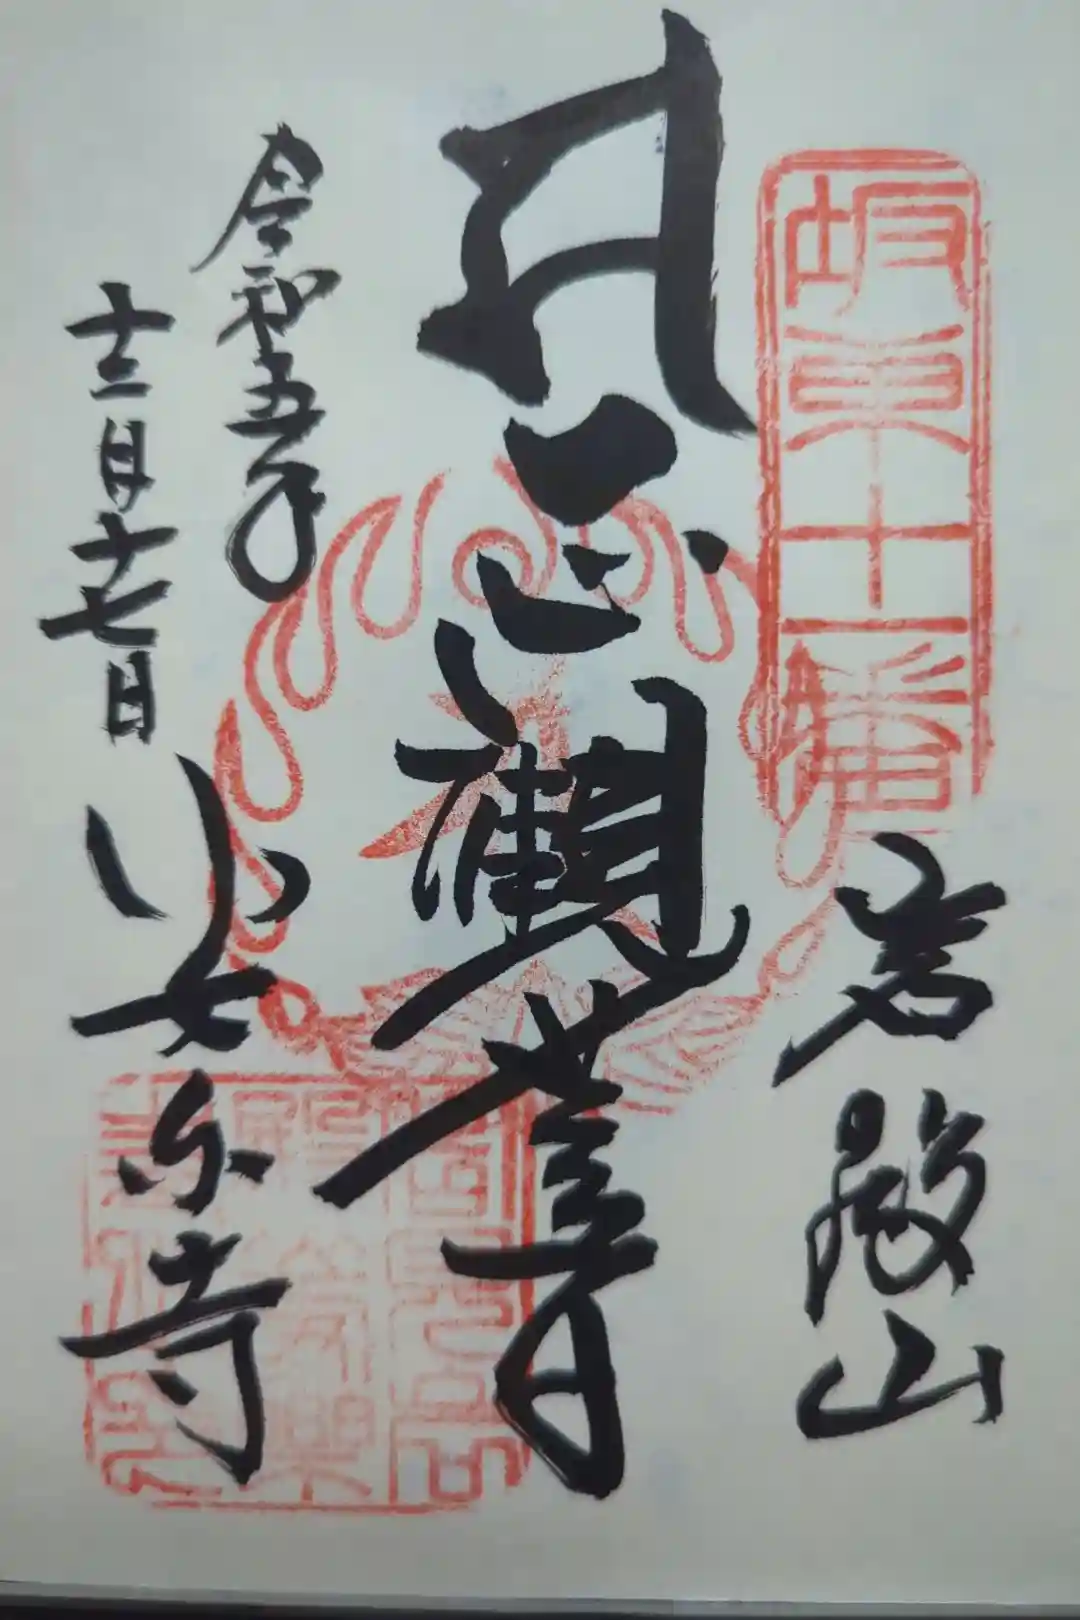 坂東十一番
岩殿山
正觀世音
令和五年
十二月十七日
安楽寺